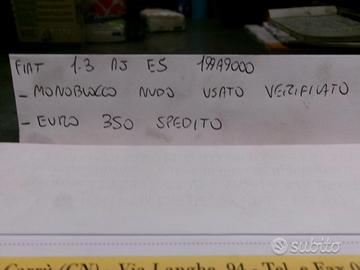 FIAT 1.3 MJ E5 199A9000
- MONOBLOCCO NUDO USATO VERIFICATO
- EURO 350 SPEDITO
subito
Carrù (CN) - Via Langhe, 94 - Tel. e Fax 0